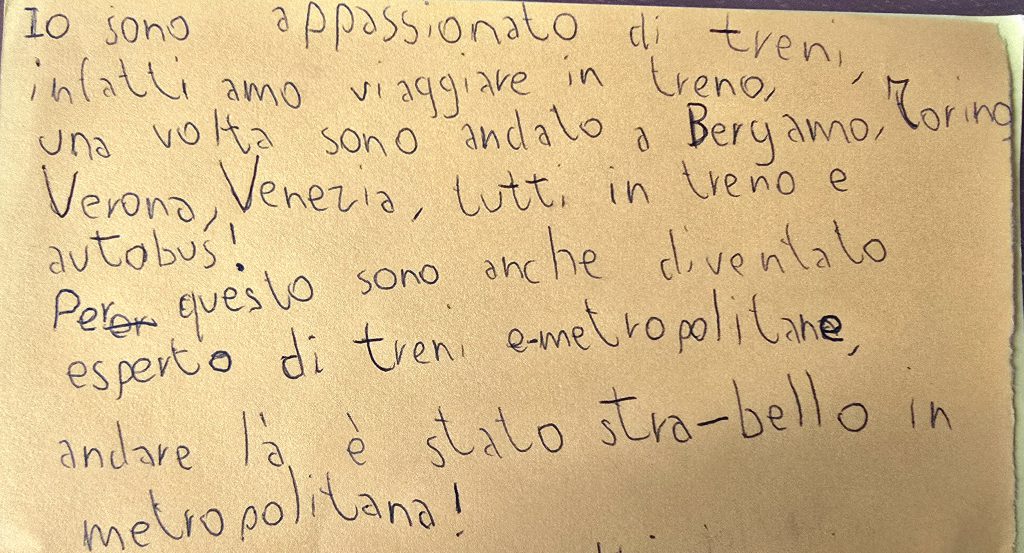 Io sono appassionato di treni,
infatti amo viaggiare in treno,
una volta sono andato a Bergamo, Torino
Verona, Venezia, tutti in treno e
autobus!
Per questo sono anche diventato
esperto di treni e metropolitane,
andare là è stato stra-bello in
metropolitana!